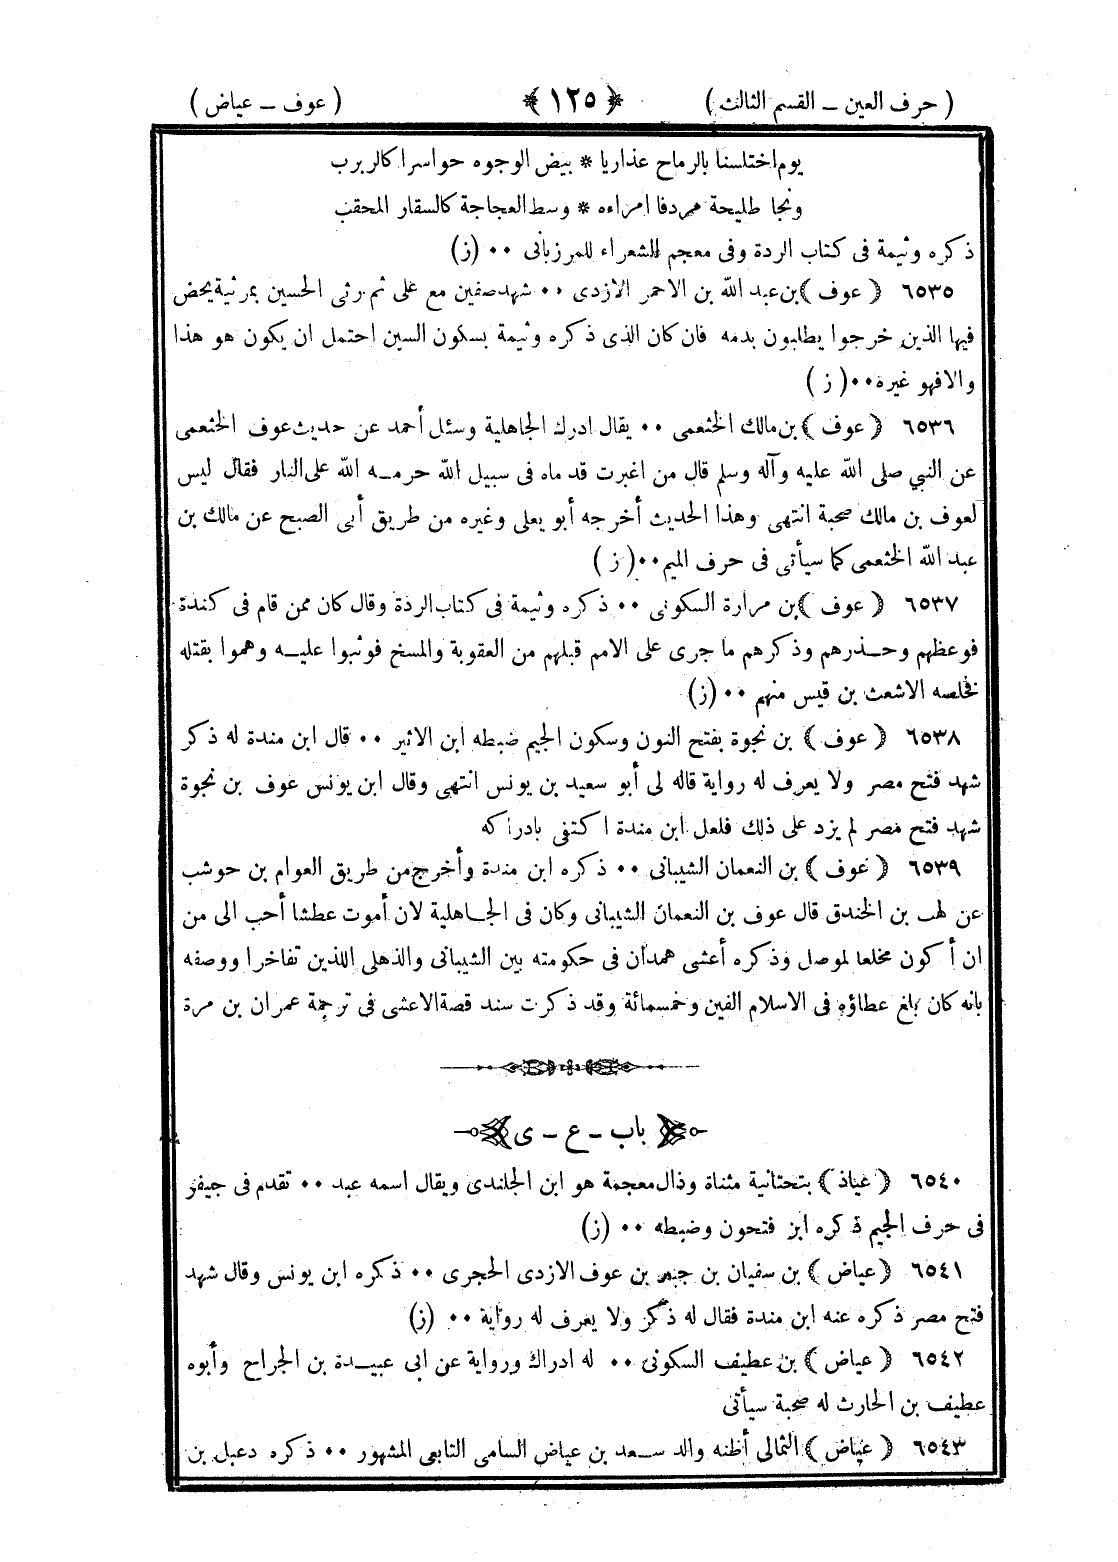 ( حرف العين – القسم الثالث ) ﴿ ١٢٥ ﴾ ( عوف – عياض )
يوم اختلسنا بالرماح عذاريا * بيض الوجوه حواسرا كالربرب
ونجا طليحة مردفا امراءه * وسط العجاجة كالسقار المحقب
ذكره وثيمة فى كتاب الردة وفى معجم الشعراء للمرزبانى ٠٠ (ز)
٦٥٣٥ ﴿ عوف ﴾ بن عبد الله بن الاحمر الازدى ٠٠ شهد صفين مع على ثم رثى الحسين بمرثية يحض
فيها الذين خرجوا يطلبون بدمه فان كان الذى ذكره وثيمة بسكون السين احتمل ان يكون هو هذا
والافهو غيره ٠٠ ( ز )
٦٥٣٦ ﴿ عوف ﴾ بن مالك الخثعمى ٠٠ يقال ادرك الجاهلية وسئل أحمد عن حديث عوف الخثعمى
عن النبي صلى الله عليه وآله وسلم قال من اغبرت قدماه فى سبيل الله حرمــه الله على النار فقال ليس
لعوف بن مالك صحبة انتهى وهذا الحديث أخرجه أبو يعلى وغيره من طريق أبى الصبح عن مالك بن
عبد الله الخثعمى كما سيأتى فى حرف الميم ٠٠ ( ز )
٦٥٣٧ ﴿ عوف ﴾ بن مرارة السكونى ٠٠ ذكره وثيمة فى كتاب الردة وقال كان ممن قام فى كندة
فوعظهم وحــذرهم وذكرهم ما جرى على الامم قبلهم من العقوبة والمسخ فوثبوا عليــه وهموا بقتله
فخلصه الاشعث بن قيس منهم ٠٠ (ز)
٦٥٣٨ ﴿ عوف ﴾ بن نجوة بفتح النون وسكون الجيم ضبطه ابن الاثير ٠٠ قال ابن مندة له ذكر
شهد فتح مصر ولا يعرف له رواية قاله لى أبو سعيد بن يونس انتهى وقال ابن يونس عوف بن نجوة
شهد فتح مصر لم يزد على ذلك فلعل ابن مندة اكتفى بادراكه
٦٥٣٩ ﴿ عوف ﴾ بن النعمان الشيبانى ٠٠ ذكره ابن مندة وأخرج من طريق العوام بن حوشب
عن لهب بن الخندق قال عوف بن النعمان الشيبانى وكان فى الجــاهلية لان أموت عطشا أحب الى من
ان أكون مخلفا لموصل وذكره أعشى همدان فى حكومته بين الشيبانى والذهلى اللذين تفاخرا ووصفه
بانه كان بلغ عطاؤه فى الاسلام الفين وخمسمائة وقد ذكرت سند قصة الاعشى فى ترجمة عمران بن مرة
باب – ع – ى
٦٥٤٠ ﴿ عياذ ﴾ بتحتانية مثناة وذال معجمة هو ابن الجلندى ويقال اسمه عبد ٠٠ تقدم فى جيفر
فى حرف الجيم ذكره ابن فتحون وضبطه ٠٠ (ز)
٦٥٤١ ﴿ عياض ﴾ بن سفيان بن بن عوف الازدى الحجرى ٠٠ ذكره ابن يونس وقال شهد
فتح مصر ذكره عنه ابن مندة فقال له ذكر ولا يعرف له رواية ٠٠ (ز)
٦٥٤٢ ﴿ عياض ﴾ بن عطيف السكونى ٠٠ له ادراك ورواية عن ابى عبيــدة بن الجراح وأبوه
عطيف بن الحارث له صحبة سيأتى
٦٥٤٣ ﴿ عياض ﴾ الثمالى أظنه والد ســعد بن عياض السامى التابعى المشهور ٠٠ ذكره دعبل بن